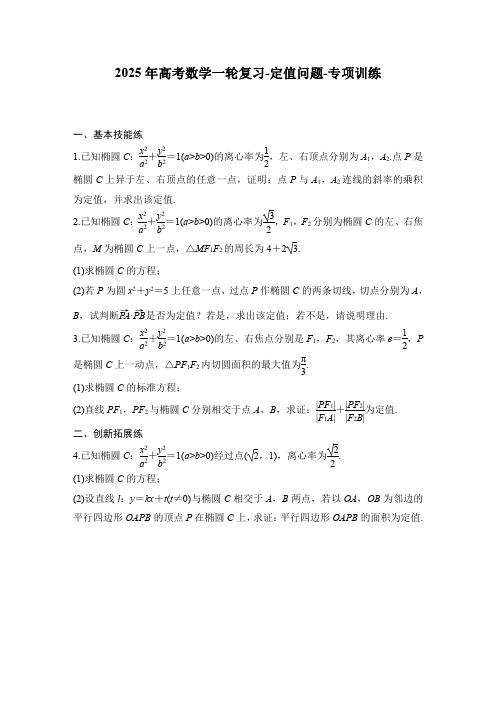 2025年高考数学一轮复习-定值问题-专项训练
一、基本技能练
1.已知椭圆 C：x²/a²＋y²/b²＝1(a>b>0)的离心率为1/2，左、右顶点分别为 A₁，A₂.点 P 是
椭圆 C 上异于左、右顶点的任意一点，证明：点 P 与 A₁，A₂ 连线的斜率的乘积
为定值，并求出该定值.
2.已知椭圆 C：x²/a²＋y²/b²＝1(a>b>0)的离心率为√3/2，F₁，F₂ 分别为椭圆 C 的左、右焦
点，M 为椭圆 C 上一点，△MF₁F₂ 的周长为 4＋2√3.
(1)求椭圆 C 的方程；
(2)若 P 为圆 x²＋y²＝5 上任意一点，过点 P 作椭圆 C 的两条切线，切点分别为 A，
B，试判断PA→·PB→是否为定值？若是，求出该定值；若不是，请说明理由.
3.已知椭圆 C：x²/a²＋y²/b²＝1(a>b>0)的左、右焦点分别是 F₁，F₂，其离心率 e＝1/2，P
是椭圆 C 上一动点，△PF₁F₂ 内切圆面积的最大值为π/3.
(1)求椭圆 C 的标准方程；
(2)直线 PF₁，PF₂ 与椭圆 C 分别相交于点 A，B，求证：|PF₁|/|F₁A|＋|PF₂|/|F₂B|为定值.
二、创新拓展练
4.已知椭圆 C：x²/a²＋y²/b²＝1(a>b>0)经过点(√2，1)，离心率为√2/2.
(1)求椭圆 C 的方程；
(2)设直线 l：y＝kx＋t(t≠0)与椭圆 C 相交于 A，B 两点，若以 OA，OB 为邻边的
平行四边形 OAPB 的顶点 P 在椭圆 C 上，求证：平行四边形 OAPB 的面积为定值.